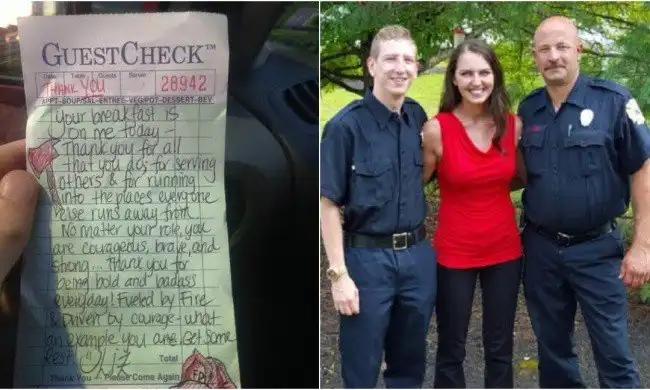 GUESTCHECK™
Date Table Guests Server
THANK YOU 28942
APPT-SOUP/SAL-ENTREE-VEG/POT-DESSERT-BEV
Your breakfast is
on me today -
Thank you for all
that you do; for serving
others & for running
into the places everyone
else runs away from.
No matter your role, you
are courageous, brave, and
strong... Thank you for
being bold and badass
everyday! Fueled by Fire
& Driven by courage - what
an example you are. Get some
rest Liz
Total
Thank You - Please Come Again
FD